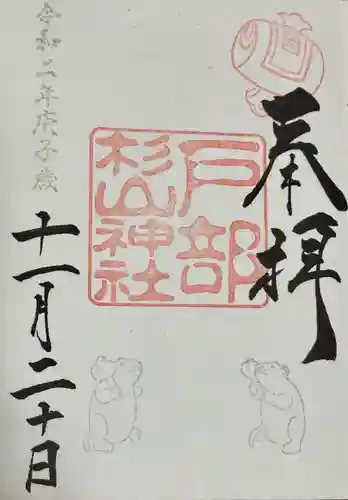 奉拝
戸部
杉山
神社
令和二年庚子歳
十一月二十日